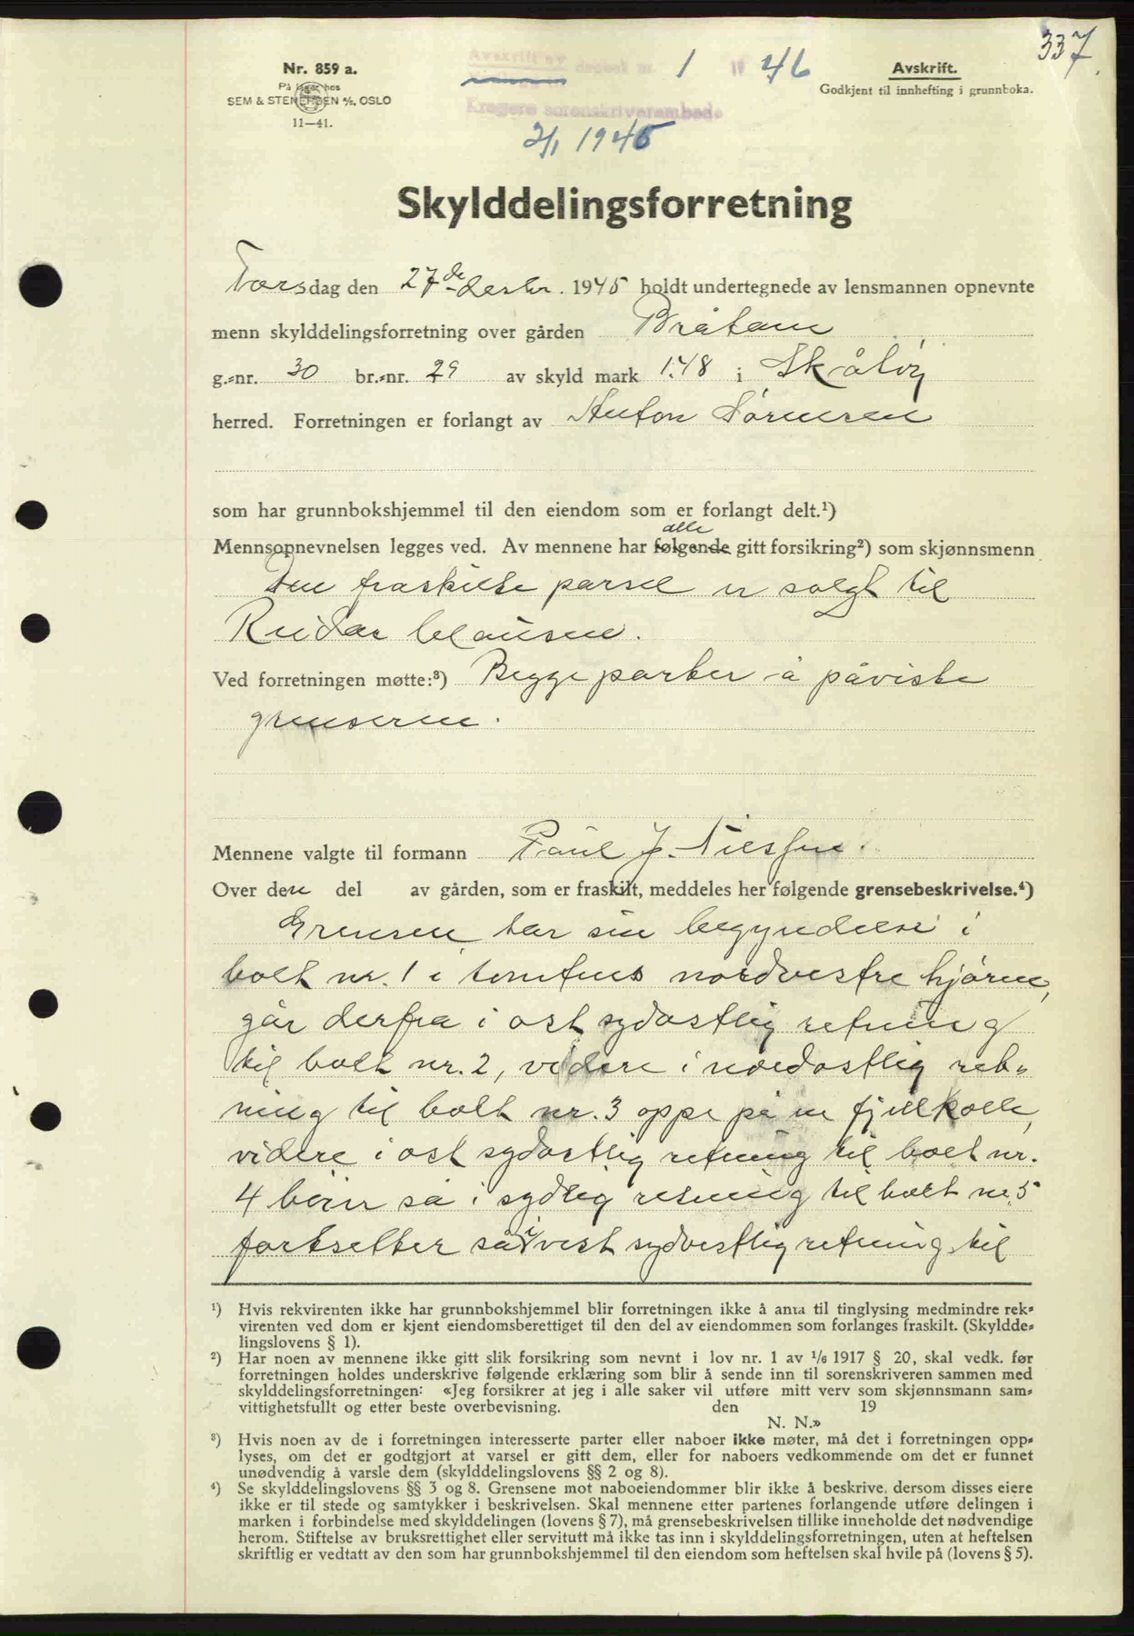 337.
Nr. 859 a.
På lager hos
SEM & STENERSEN A/S, OSLO
11—41.
Avskrift av dagbok nr. 1 19 46
Kragerø sorenskriverembede
2/1 1946
Avskrift.
Godkjent til innhefting i grunnboka.
Skylddelingsforretning
Torsdag den 27de desbr. 1945 holdt undertegnede av lensmannen opnevnte
menn skylddelingsforretning over gården Bråtane
g.-nr. 30 br.-nr. 29 av skyld mark 1.48 i Skåtøy
herred. Forretningen er forlangt av Anton Sørensen
som har grunnbokshjemmel til den eiendom som er forlangt delt.¹)
alle
Mennsopnevnelsen legges ved. Av mennene har følgende gitt forsikring²) som skjønnsmenn
Den fraskilte parsel er solgt til
Reidar Clausen.
Ved forretningen møtte:³) Begge parter å påviste
grenserne.
Mennene valgte til formann Paul J. Nilssen.
Over den del av gården, som er fraskilt, meddeles her følgende grensebeskrivelse.⁴)
Grensen tar sin begyndelse i
bolt nr. 1 i tomtens nordvestre hjørne,
går derfra i ost sydostlig retning
til bolt nr. 2, videre i nordostlig ret-
ning til bolt nr. 3 oppe på en fjellkolle,
videre i ost sydostlig retning til bolt nr.
4 bøier så i sydlig retning til bolt nr. 5
fortsetter så i vest sydvestlig retning til
¹) Hvis rekvirenten ikke har grunnbokshjemmel blir forretningen ikke å anta til tinglysing medmindre rek-
virenten ved dom er kjent eiendomsberettiget til den del av eiendommen som forlanges fraskilt. (Skyldde-
lingslovens § 1).
²) Har noen av mennene ikke gitt slik forsikring som nevnt i lov nr. 1 av 1/6 1917 § 20, skal vedk. før
forretningen holdes underskrive følgende erklæring som blir å sende inn til sorenskriveren sammen med
skylddelingsforretningen: «Jeg forsikrer at jeg i alle saker vil utføre mitt verv som skjønnsmann sam-
vittighetsfullt og etter beste overbevisning. den 19
N. N.»
³) Hvis noen av de i forretningen interesserte parter eller naboer ikke møter, må det i forretningen opp-
lyses, om det er godtgjort at varsel er gitt dem, eller for naboers vedkommende om det er funnet
unødvendig å varsle dem (skylddelingslovens §§ 2 og 8).
⁴) Se skylddelingslovens §§ 3 og 8. Grensene mot naboeiendommer blir ikke å beskrive, dersom disses eiere
ikke er til stede og samtykker i beskrivelsen. Skal mennene etter partenes forlangende utføre delingen i
marken i forbindelse med skylddelingen (lovens § 7), må grensebeskrivelsen tillike inneholde det nødvendige
herom. Stiftelse av bruksrettighet eller servitutt må ikke tas inn i skylddelingsforretningen, uten at heftelsen
skriftlig er vedtatt av den som har grunnbokshjemmel til den eiendom som heftelsen skal hvile på (lovens § 5).